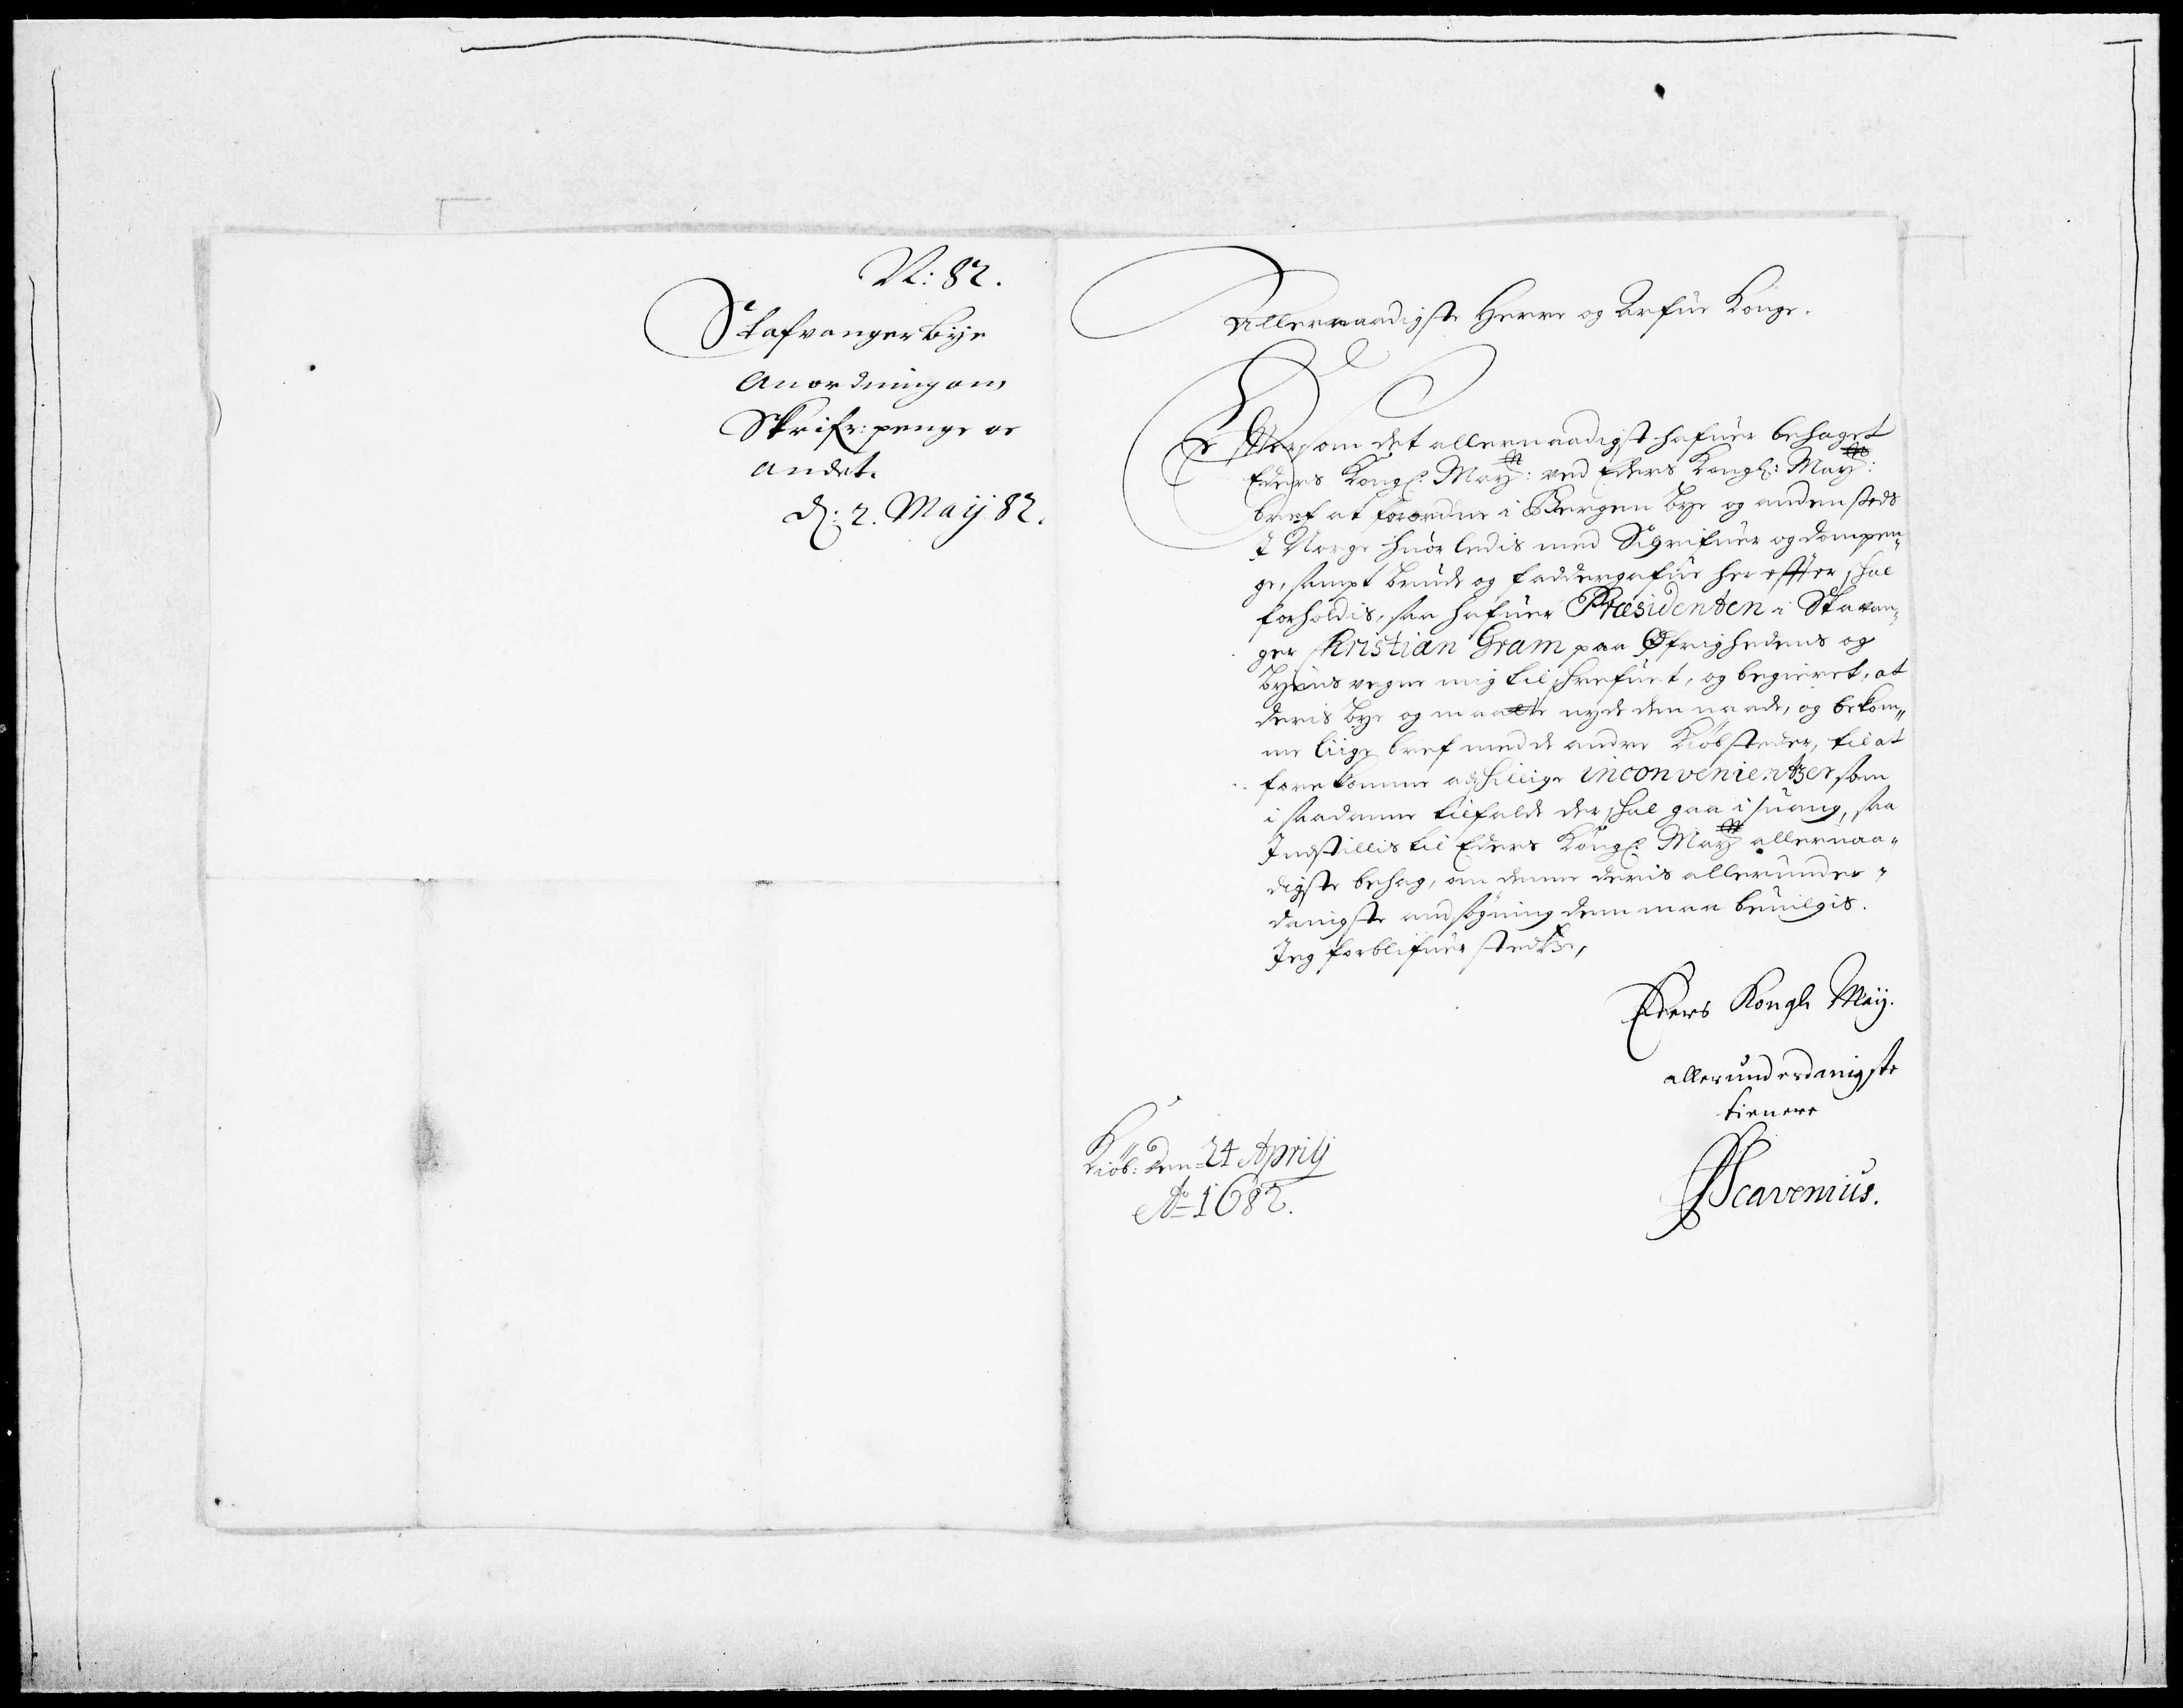 N: 82.
Stafvanger Bÿe
Anordning om
Skrifr: penge oc
andet.
d: 2. Maij 82.
Allernaadigste Herre og Arfue Konge.
Effersom det allernaadigst hafuer behaget
Eders Kongl: May:tt ved Eders Kongl: May:tts
bref at forordne i Bergen bye og andensteds
I Norge huorledis med Sigrifuer og dompen¬
ge, sampt brude og faddergafue her effter skal
forholdis, saa hafuer Præsidenten i Stavan¬
ger Kristian Gram paa Øfrighedens og
Byens vegne mig tilskrefuet, og begieret, at
deris bye og maatte nyde den naade, og bekom¬
me liige bref med de andre Kiøbsteder, til at
forekomme adskillige inconvenientzer som
i saadanne tilfalde der skal gaa i suang, saa
Indstillis til Eders Kongl: May:tt allernaa¬
digste behag, om denne deris allerunder¬
danigste ansøgning dem maa beuilgis.
Jeg forblifuer stedtze,
Eders Kongl May.
allerunderdanigste
tienere
Kiøb: den 24 Aprilj
Ao 1682.
PScavenius.